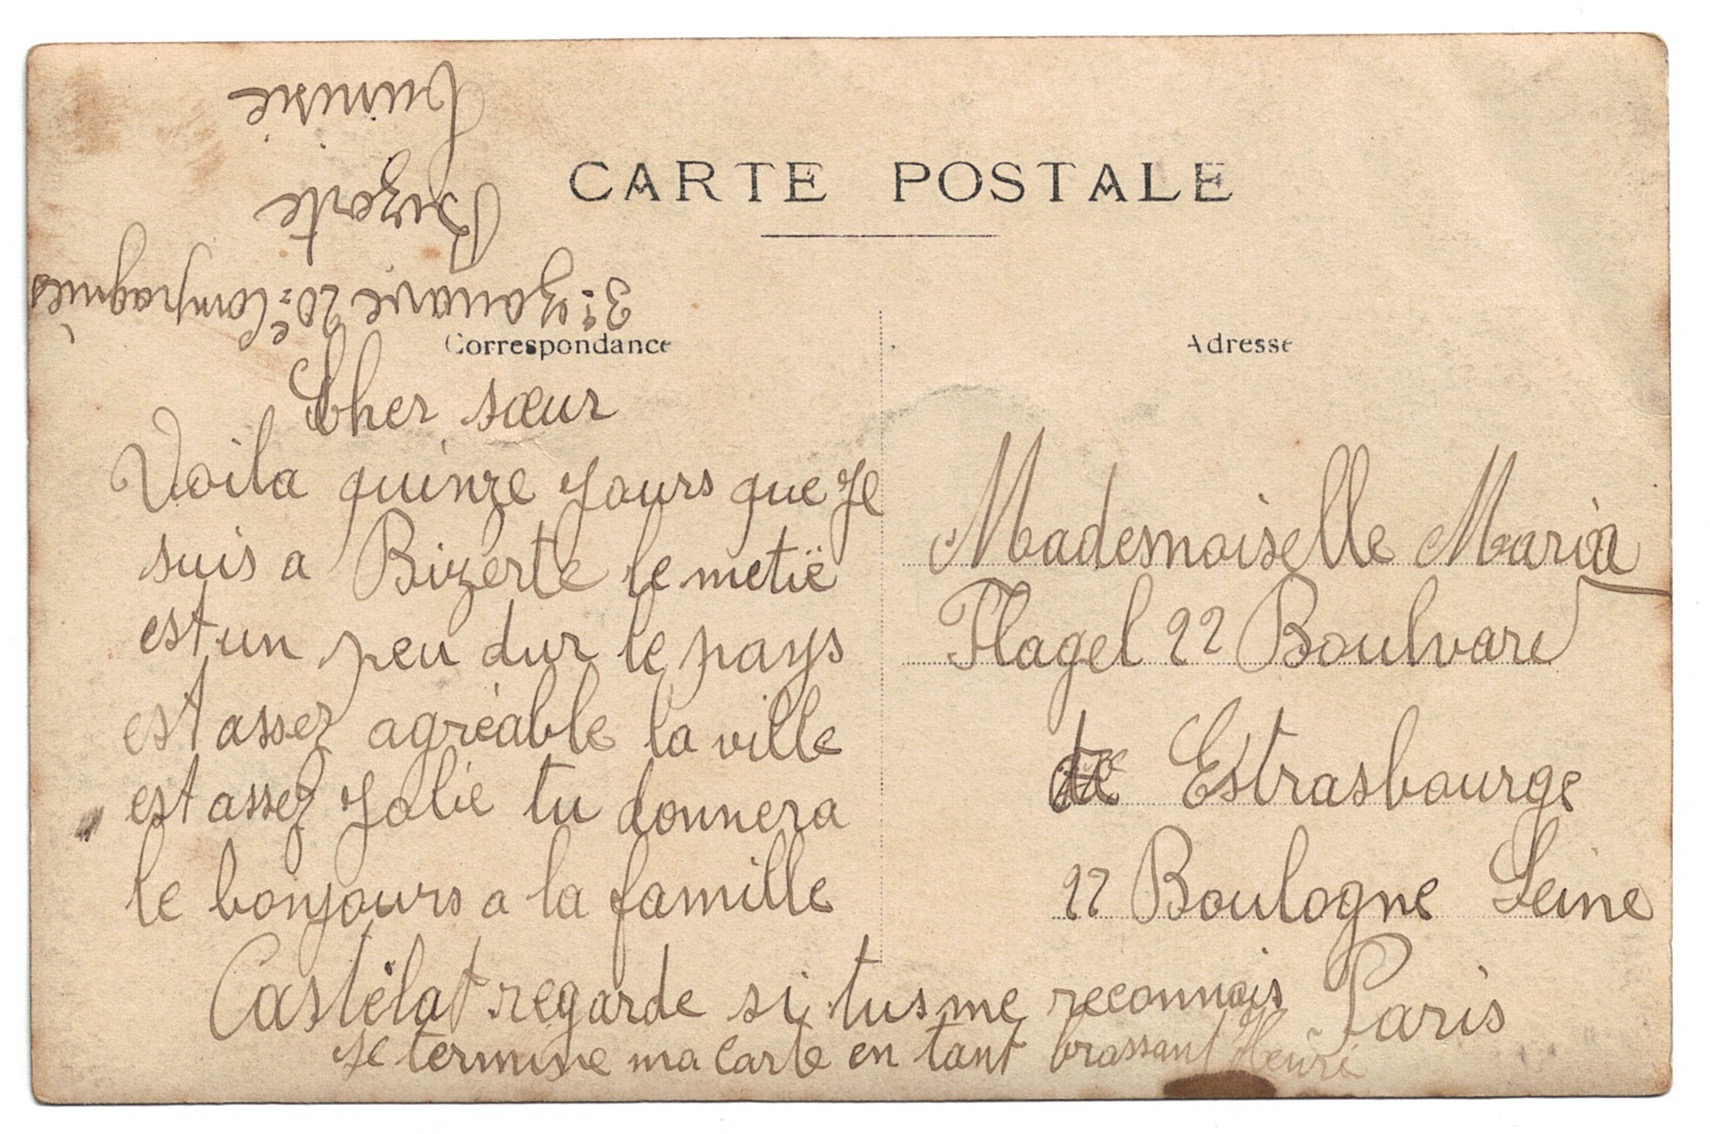 CARTE POSTALE
Tunisie
Bizerte
3e zouave 20e Compagnies
Correspondance
Adresse
Cher sœur
Voila quinze jours que je
suis a Bizerte le metië
est un peu dur le pays
est assez agréable la ville
est assez jolie tu donnera
le bonjours a la famille
Castelat regarde si tus me reconnais
je termine ma carte en tant brassant Henri
Mademoiselle Maria
Flagel 22 Boulvard
de Estrasbourge
22 Boulogne Seine
Paris